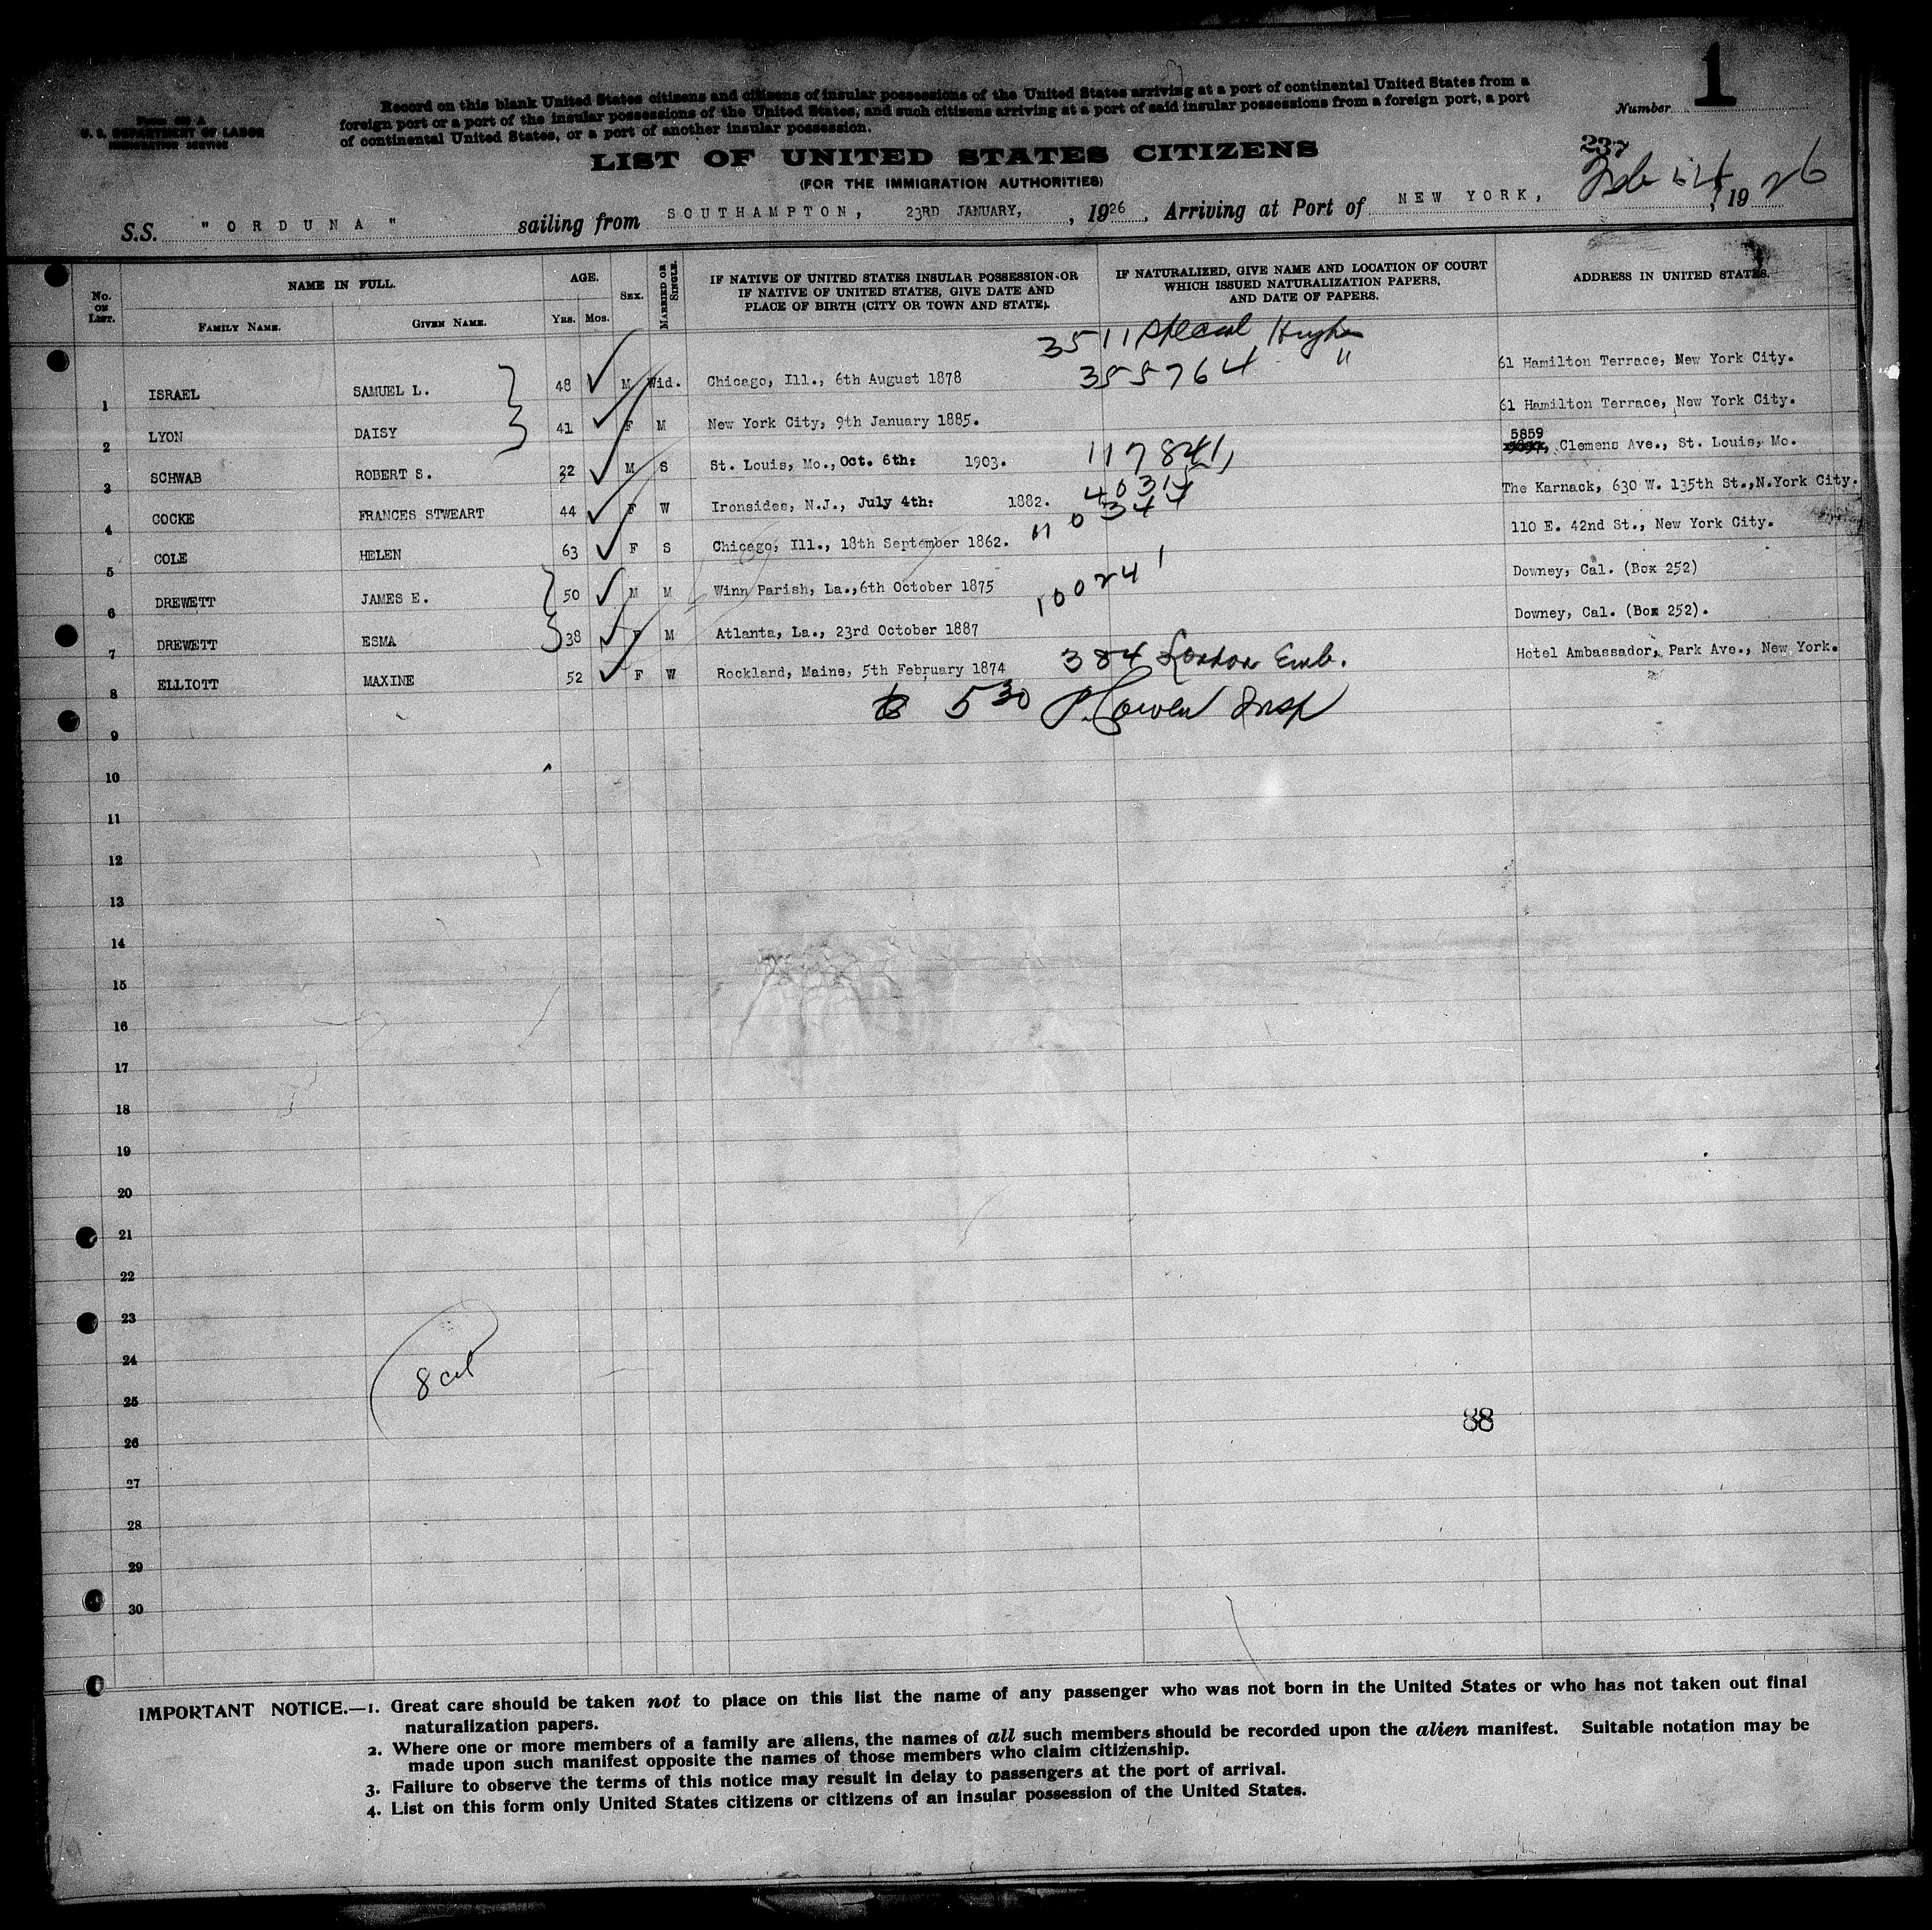 1
Number
Form 630 A
U. S. DEPARTMENT OF LABOR
IMMIGRATION SERVICE
Record on this blank United States citizens and citizens of insular possessions of the United States arriving at a port of continental United States from a
foreign port or a port of the insular possessions of the United States, and such citizens arriving at a port of said insular possessions from a foreign port, a port
of continental United States, or a port of another insular possession.
LIST OF UNITED STATES CITIZENS
(FOR THE IMMIGRATION AUTHORITIES)
S.S. "ORDUNA" sailing from SOUTHAMPTON, 23RD JANUARY, , 1926, Arriving at Port of NEW YORK, Feb , 1926
No. ON LIST.
NAME IN FULL.
FAMILY NAME. GIVEN NAME.
AGE.
YRS. MOS.
SEX.
MARRIED OR SINGLE.
IF NATIVE OF UNITED STATES INSULAR POSSESSION OR
IF NATIVE OF UNITED STATES, GIVE DATE AND
PLACE OF BIRTH (CITY OR TOWN AND STATE).
IF NATURALIZED, GIVE NAME AND LOCATION OF COURT
WHICH ISSUED NATURALIZATION PAPERS,
AND DATE OF PAPERS.
ADDRESS IN UNITED STATES.
3511 Special Hughes
355764 "
1 ISRAEL SAMUEL L. 48 M Wid. Chicago, Ill., 6th August 1878 61 Hamilton Terrace, New York City.
2 LYON DAISY 41 F M New York City, 9th January 1885. 61 Hamilton Terrace, New York City.
3 SCHWAB ROBERT S. 22 M S St. Louis, Mo., Oct. 6th: 1903. 117841 5859 Clemens Ave., St. Louis, Mo.
4 COCKE FRANCES STWEART 44 F W Ironsides, N.J., July 4th: 1882. The Karnack, 630 W. 135th St., N.York City.
5 COLE HELEN 63 F S Chicago, Ill., 18th September 1862. 110344 110 E. 42nd St., New York City.
6 DREWETT JAMES E. 50 M M Winn Parish, La., 6th October 1875 100241 Downey, Cal. (Box 252)
7 DREWETT ESMA 38 F M Atlanta, La., 23rd October 1887 Downey, Cal. (Box 252).
8 ELLIOTT MAXINE 52 F W Rockland, Maine, 5th February 1874 384 London Emb. Hotel Ambassador, Park Ave., New York.
530 Insp
9
10
11
12
13
14
15
16
17
18
19
20
21
22
23
24
8 cit
25
88
26
27
28
29
30
IMPORTANT NOTICE.—1. Great care should be taken not to place on this list the name of any passenger who was not born in the United States or who has not taken out final
naturalization papers.
2. Where one or more members of a family are aliens, the names of all such members should be recorded upon the alien manifest. Suitable notation may be
made upon such manifest opposite the names of those members who claim citizenship.
3. Failure to observe the terms of this notice may result in delay to passengers at the port of arrival.
4. List on this form only United States citizens or citizens of an insular possession of the United States.